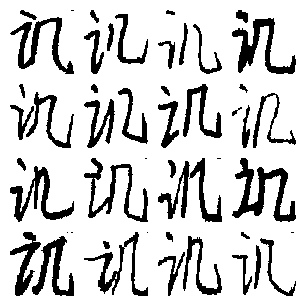 讥讥讥讥
讥讥讥讥
讥讥讥讥
讥讥讥讥